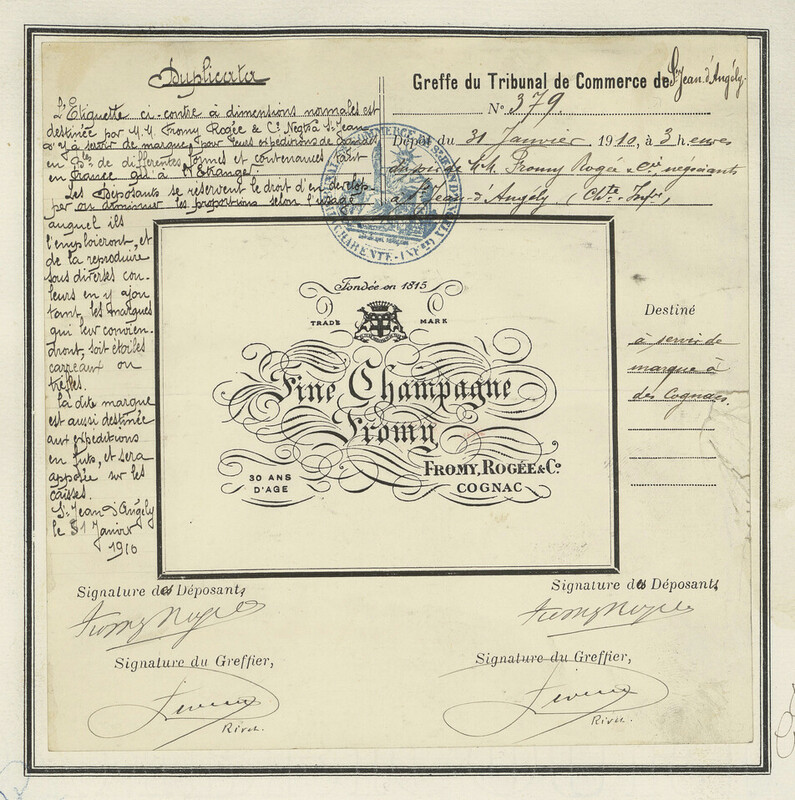 Duplicata
L'Etiquette ci-contre à dimentions normales est
destinée par M.M. Fromy Rogée & Cie Négts à St Jean
d'Y à servir de marque, pour leurs expéditions de Cognacs
en Bles de différentes formes et contenances tant
en France qu'à l'Etranger.
Les Déposants se réservent le droit d'en développer
ou diminuer les proportions selon l'usage
auquel ils
l'emploieront, et
de la reproduire
sous diverses cou-
leurs en y ajou
tant, les marques
qui leur convien-
dront, soit étoiles
carreaux ou
trèfles.
La dite marque
est aussi destinée
aux expéditions
en futs, et sera
apposée sur les
caisses.
St Jean d'Angély
le 31 Janvier
1910
Greffe du Tribunal de Commerce de St Jean d'Angély
No 379
Dépôt du 31 Janvier 1910, à 3 heures
du soir de MM. Fromy Rogée & Cie, négociants
à St Jean-d'Angély, (Chte-Infre)
Fondée en 1815
TRADE MARK
Fine Champagne
Fromy
30 ANS
D'AGE
FROMY, ROGÉE & Co
COGNAC
Destiné
à servir de
marque à
des Cognacs.
Signature des Déposants
Signature des Déposants,
Fromy Rogée
Fromy Rogée
Signature du Greffier,
Signature du Greffier,